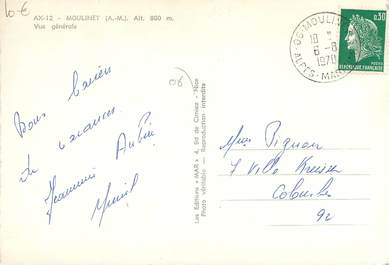 10 €
AX-12 - MOULINET (A.-M.). Alt. 800 m.
Vue générale
06-MOULINET
18 -
6-8
1970
ALPES-MAR
0,30
POSTES
RÉPUBLIQUE FRANÇAISE
(06)
Bons
de vacances
Jeannine
Les Editions "MAR" 4, Bd de Cimiez - Nice
Photo véritable - Reproduction interdite
Pignon
7 Ville
Colombes
92